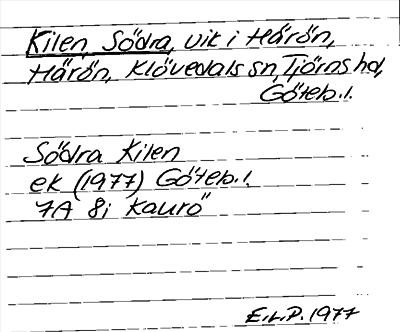 Kilen, Södra, vik i Härön,
Härön, Klövedals sn, Tjörns hd,
Göteb. l.
Södra Kilen
ek (1977) Göteb. l.
7A 8i Kaurö
E.L.P. 1977